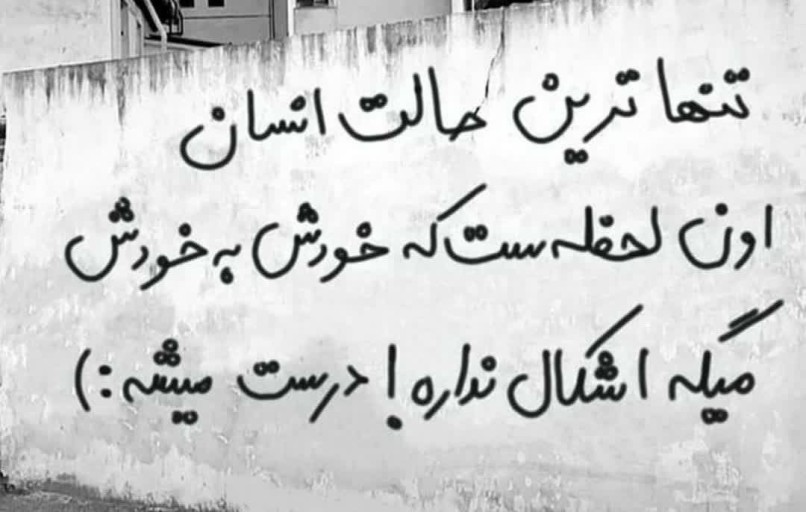 تنهاترین حالت انسان
اون لحظه ست که خودش به خودش
میگه اشکال نداره! درست میشه :)